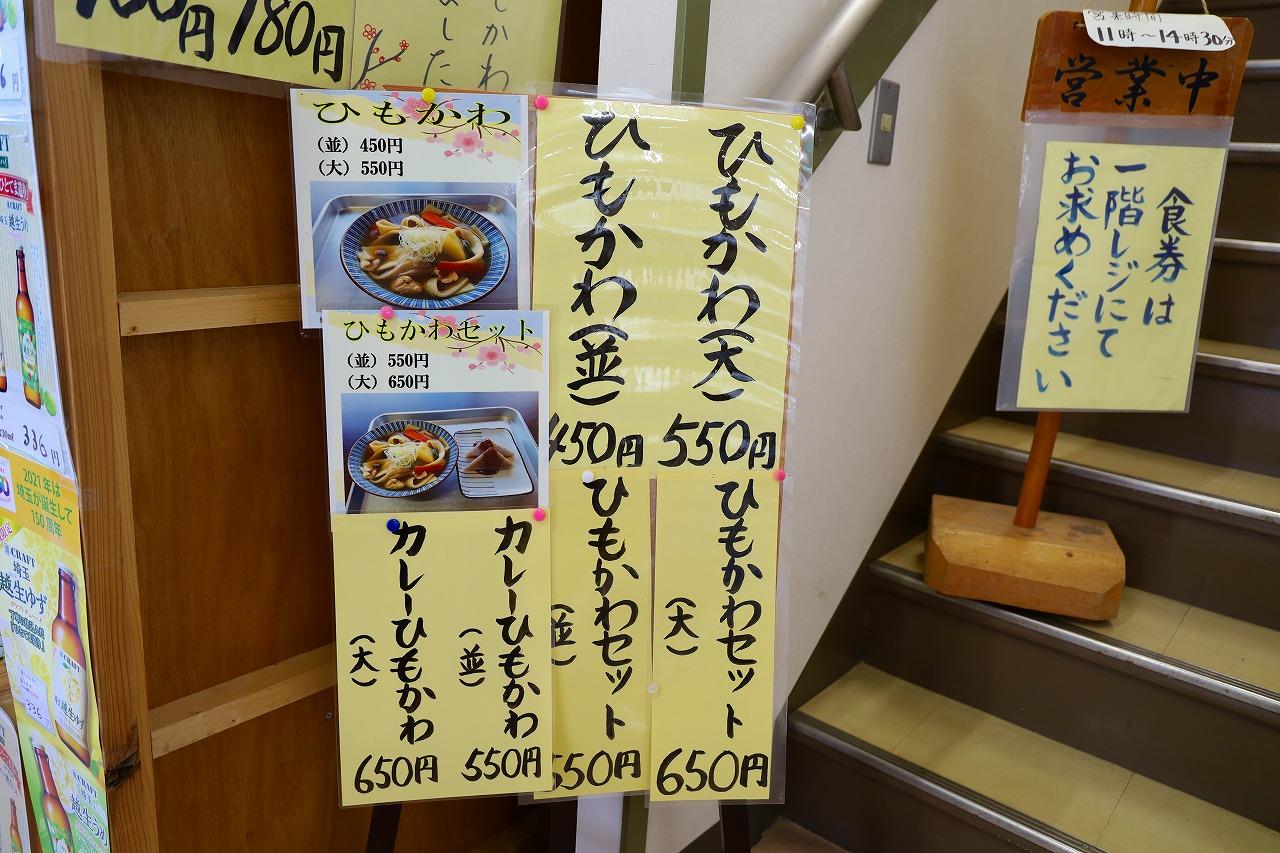 780円
ひもかわ
（並）450円
（大）550円
ひもかわセット
（並）550円
（大）650円
ひもかわ(大)
550円
ひもかわ(並)
450円
ひもかわセット
(大)
650円
ひもかわセット
(並)
550円
カレーひもかわ
(並)
550円
カレーひもかわ
(大)
650円
営業時間
11時〜14時30分
営業中
食券は
一階レジにて
お求めください
336円
2021年は
埼玉が誕生して
150周年
CRAFT
埼玉
越生ゆず